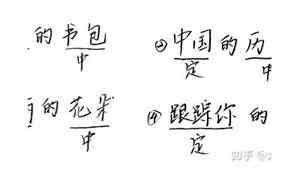 的书包 ②中国的历
中 定 中
的花朵 ④跟踪你的
中 定
知乎